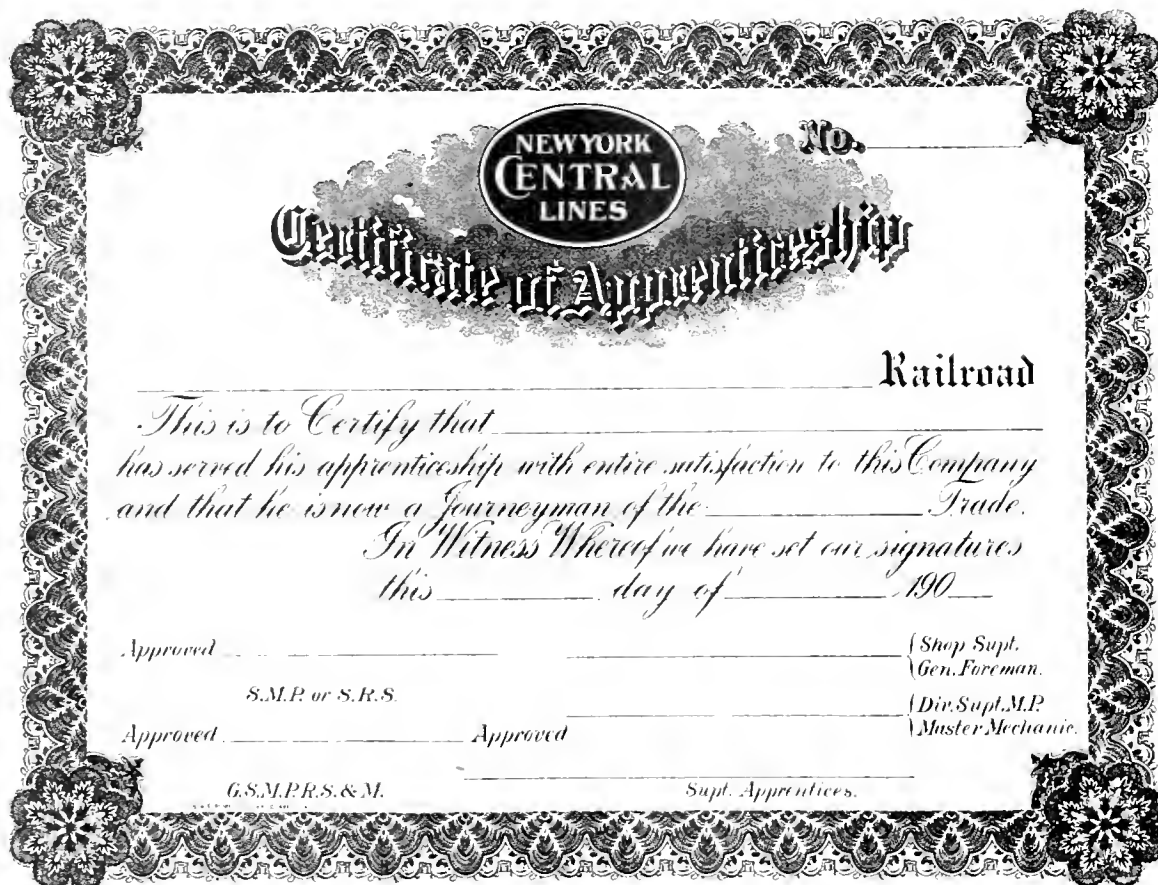 NEW YORK
CENTRAL
LINES
No.
Certificate of Apprenticeship
Railroad
This is to Certify that
has served his apprenticeship with entire satisfaction to this Company
and that he is now a Journeyman of the Trade.
In Witness Whereof we have set our signatures
this day of 190
Approved
Shop Supt.
Gen. Foreman.
S.M.P. or S.R.S.
Div. Supt. M.P.
Master Mechanic.
Approved Approved
G.S.M.P.R.S. & M.
Supt. Apprentices.